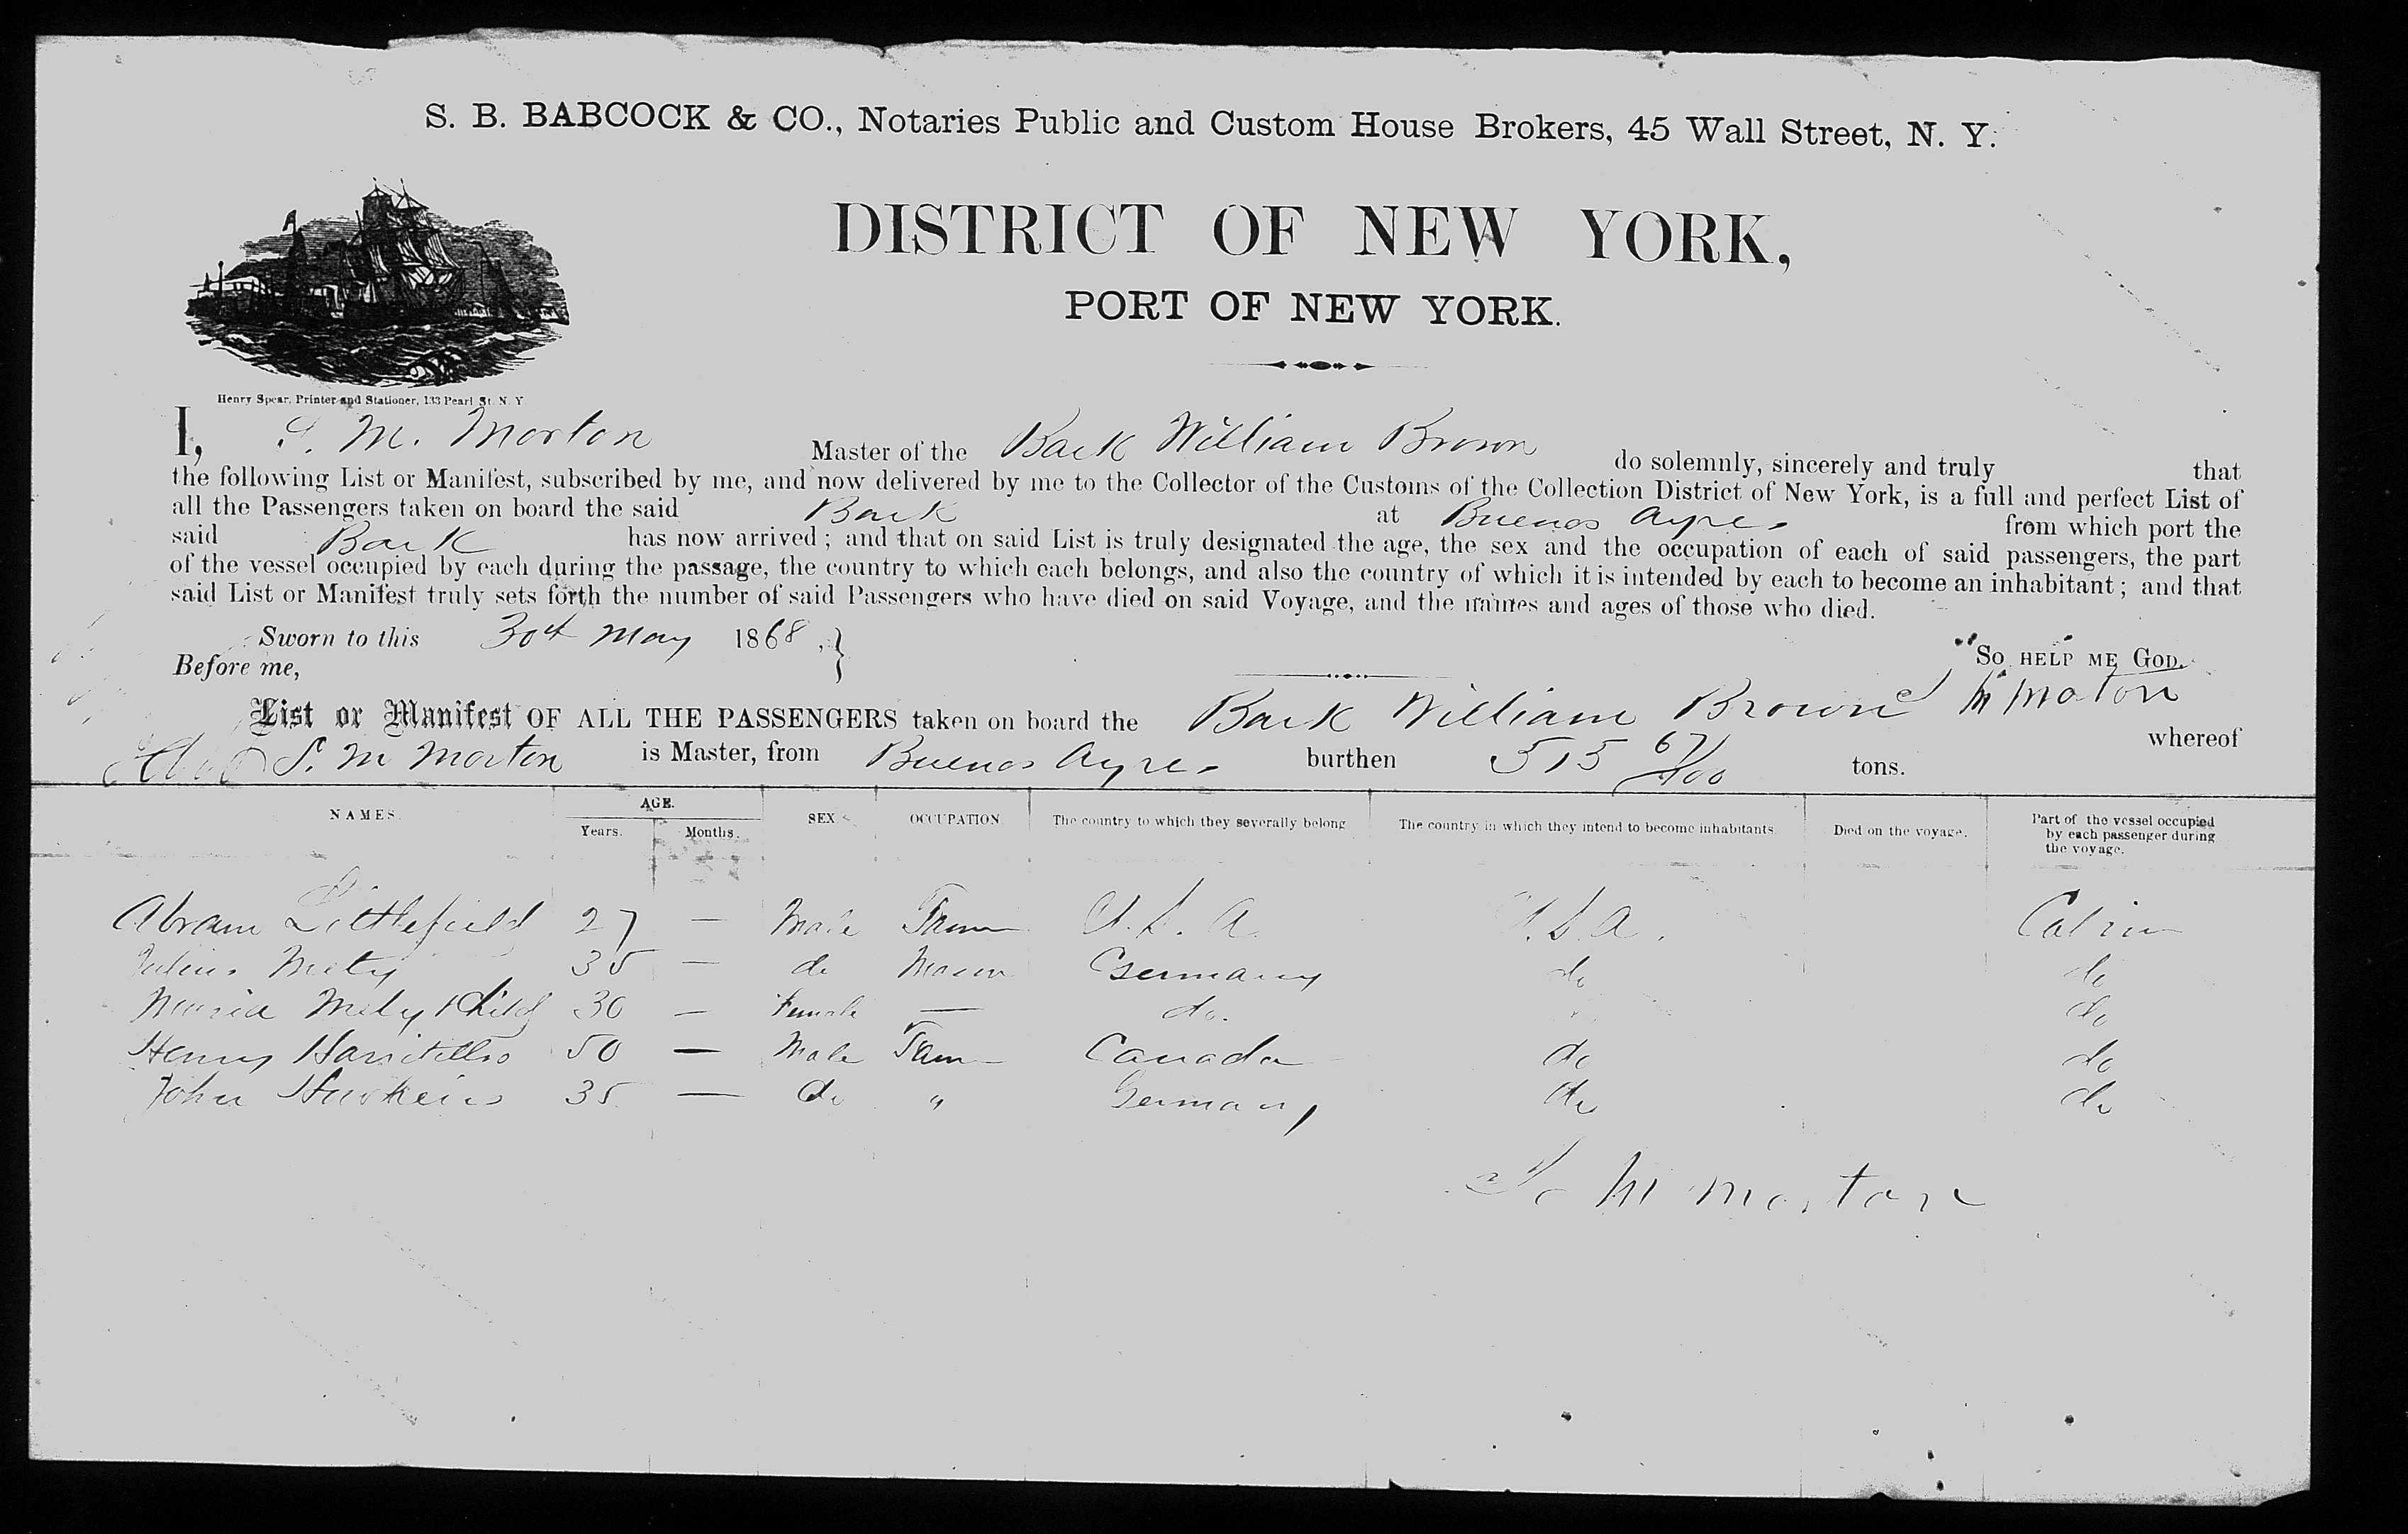 S. B. BABCOCK & CO., Notaries Public and Custom House Brokers, 45 Wall Street, N. Y.
DISTRICT OF NEW YORK,
PORT OF NEW YORK.
Henry Spear, Printer and Stationer, 133 Pearl St. N. Y.
I, S. M. Morton Master of the Bark William Brown do solemnly, sincerely and truly that
the following List or Manifest, subscribed by me, and now delivered by me to the Collector of the Customs of the Collection District of New York, is a full and perfect List of
all the Passengers taken on board the said Bark at Buenos Ayres from which port the
said Bark has now arrived; and that on said List is truly designated the age, the sex and the occupation of each of said passengers, the part
of the vessel occupied by each during the passage, the country to which each belongs, and also the country of which it is intended by each to become an inhabitant; and that
said List or Manifest truly sets forth the number of said Passengers who have died on said Voyage, and the names and ages of those who died.
Sworn to this 30th May 1868, } So HELP ME GOD.
Before me,
M Morton
List or Manifest OF ALL THE PASSENGERS taken on board the Bark William Brown whereof
S. M Morton is Master, from Buenos Ayres burthen 515 67/100 tons.
NAMES. AGE. Years. Months. SEX OCCUPATION The country to which they severally belong The country in which they intend to become inhabitants Died on the voyage. Part of the vessel occupied by each passenger during the voyage.
Abram Littlefield 27 — Male U. S. A. U. S. A. Cabin
Julius Metz 35 — do Mason Germany do do
Maria Metz & Child 30 — Female — do. do
Henry 50 — Male Canada do do
John Hawkins 35 — do " Germany do do
S M Morton